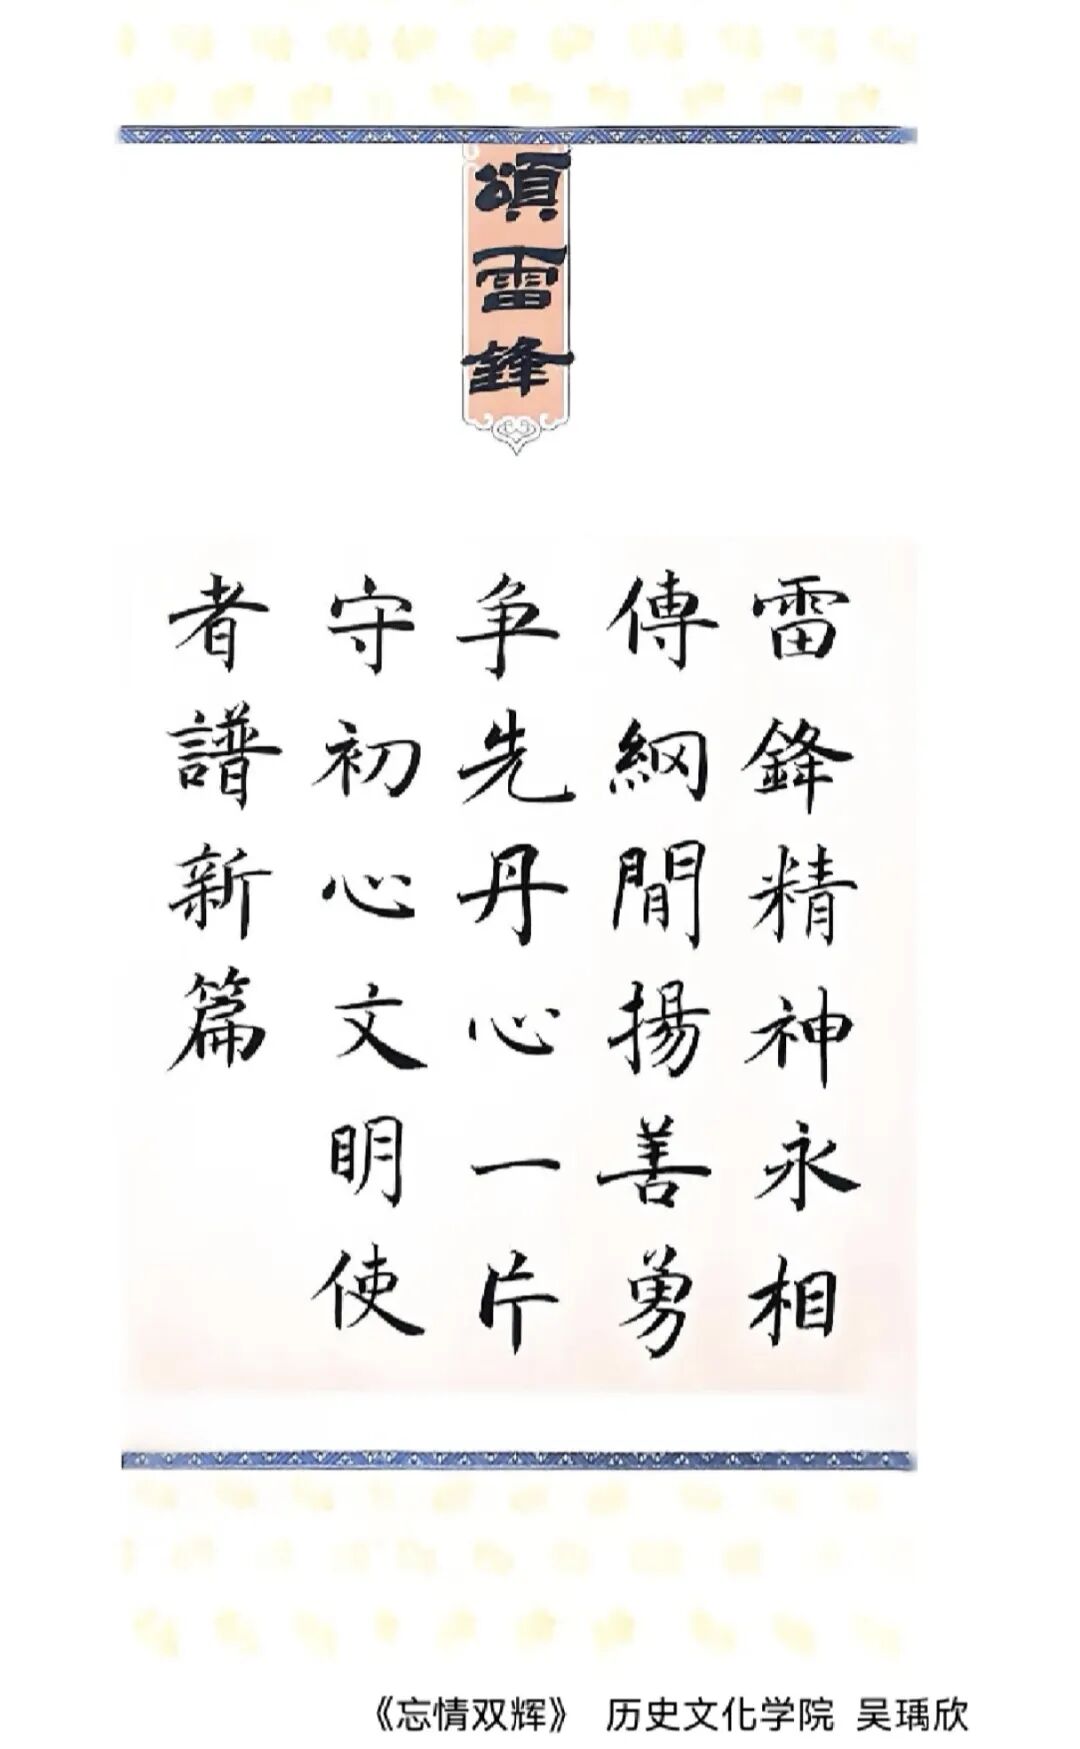 頌雷鋒
雷鋒精神永相
傳網間揚善勇
争先丹心一片
守初心文明使
者譜新篇
《忘情双辉》 历史文化学院 吴瑀欣